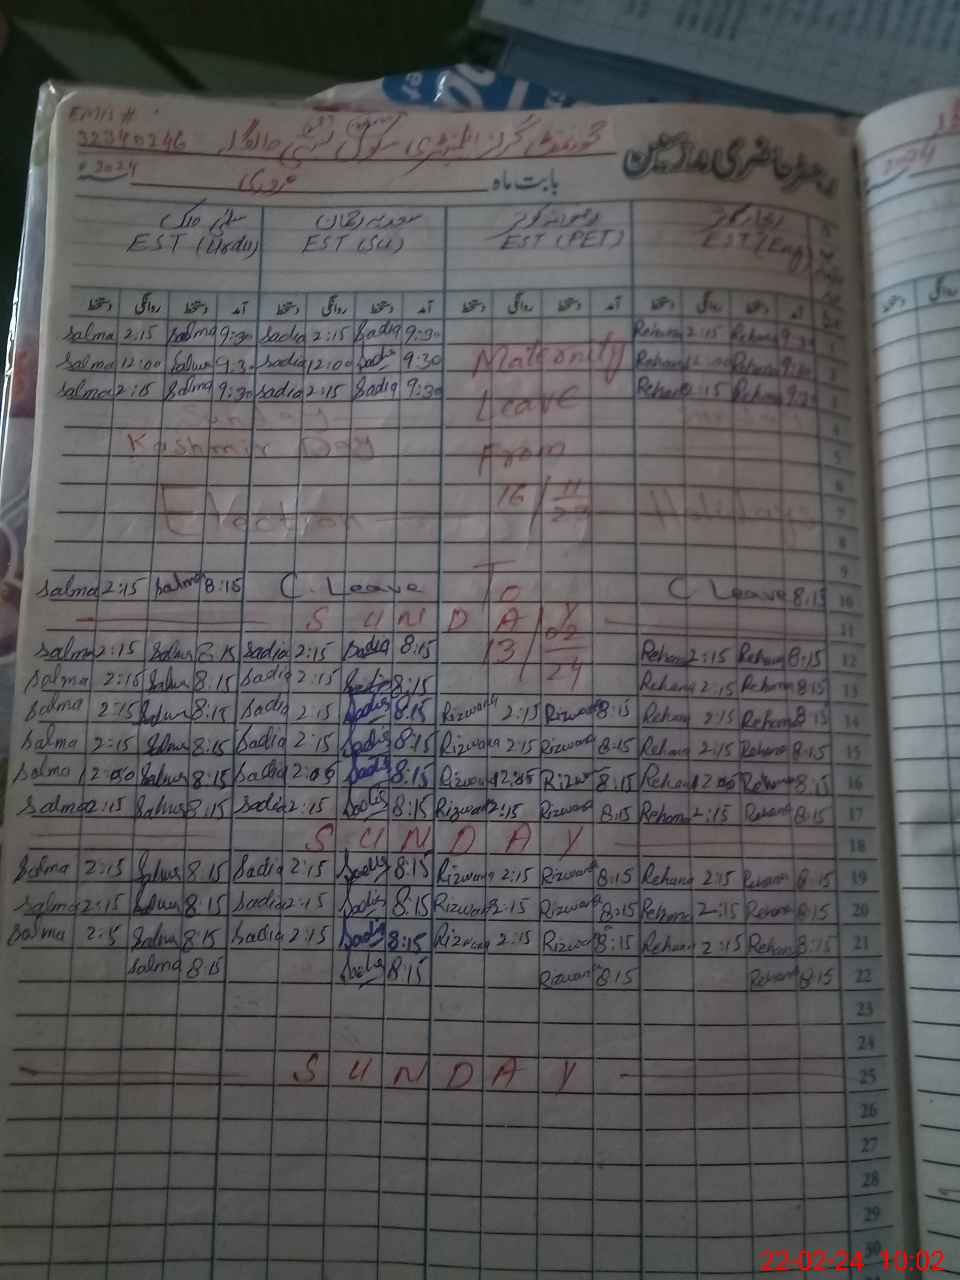 EMIS #
32340246
رجسٹر حاضری مدرسین
2024 فروری بابت ماہ
EST (Urdu) EST (Sci) EST (PET) EST (Eng)
دستخط روانگی دستخط آمد دستخط روانگی دستخط آمد دستخط روانگی دستخط آمد دستخط روانگی دستخط آمد
Salma 2:15 Salma 9:30 Sadia 2:15 Sadia 9:30 Rehana 2:15 Rehana 9:30 1
Salma 12:00 Salma 9:30 Sadia 12:00 Sadia 9:30 Maternity Rehana 12:00 Rehana 9:30 2
Salma 2:15 Salma 9:30 Sadia 2:15 Sadia 9:30 Leave Rehana 2:15 Rehana 9:30 3
Sunday 4
Kashmir Day From 5
6
Election 16/11/23 Holidays 7
8
9
Salma 2:15 Salma 8:15 C. Leave To C Leave 8:15 10
SUNDAY 11
Salma 2:15 Salma 8:15 Sadia 2:15 Sadia 8:15 13/02/24 Rehana 2:15 Rehana 8:15 12
Salma 2:15 Salma 8:15 Sadia 2:15 Sadia 8:15 Rehana 2:15 Rehana 8:15 13
Salma 2:15 Salma 8:15 Sadia 2:15 Sadia 8:15 Rizwana 2:15 Rizwana 8:15 Rehana 2:15 Rehana 8:15 14
Salma 2:15 Salma 8:15 Sadia 2:15 Sadia 8:15 Rizwana 2:15 Rizwana 8:15 Rehana 2:15 Rehana 8:15 15
Salma 12:00 Salma 8:15 Sadia Sadia 8:15 Rizwana Rizwana 8:15 Rehana Rehana 8:15 16
Salma 2:15 Salma 8:15 Sadia 2:15 Sadia 8:15 Rizwana 2:15 Rizwana 8:15 Rehana 2:15 Rehana 8:15 17
SUNDAY 18
Salma 2:15 Salma 8:15 Sadia 2:15 Sadia 8:15 Rizwana 2:15 Rizwana 8:15 Rehana 2:15 Rehana 8:15 19
Salma 2:15 Salma 8:15 Sadia 2:15 Sadia 8:15 Rizwana 2:15 Rizwana 8:15 Rehana 2:15 Rehana 8:15 20
Salma 2:5 Salma 8:15 Sadia 2:15 Sadia 8:15 Rizwana 2:15 Rizwana 8:15 Rehana 2:15 Rehana 8:15 21
Salma 8:15 Sadia 8:15 Rizwana 8:15 Rehana 8:15 22
23
24
SUNDAY 25
26
27
28
29
30
22-02-24 10:02